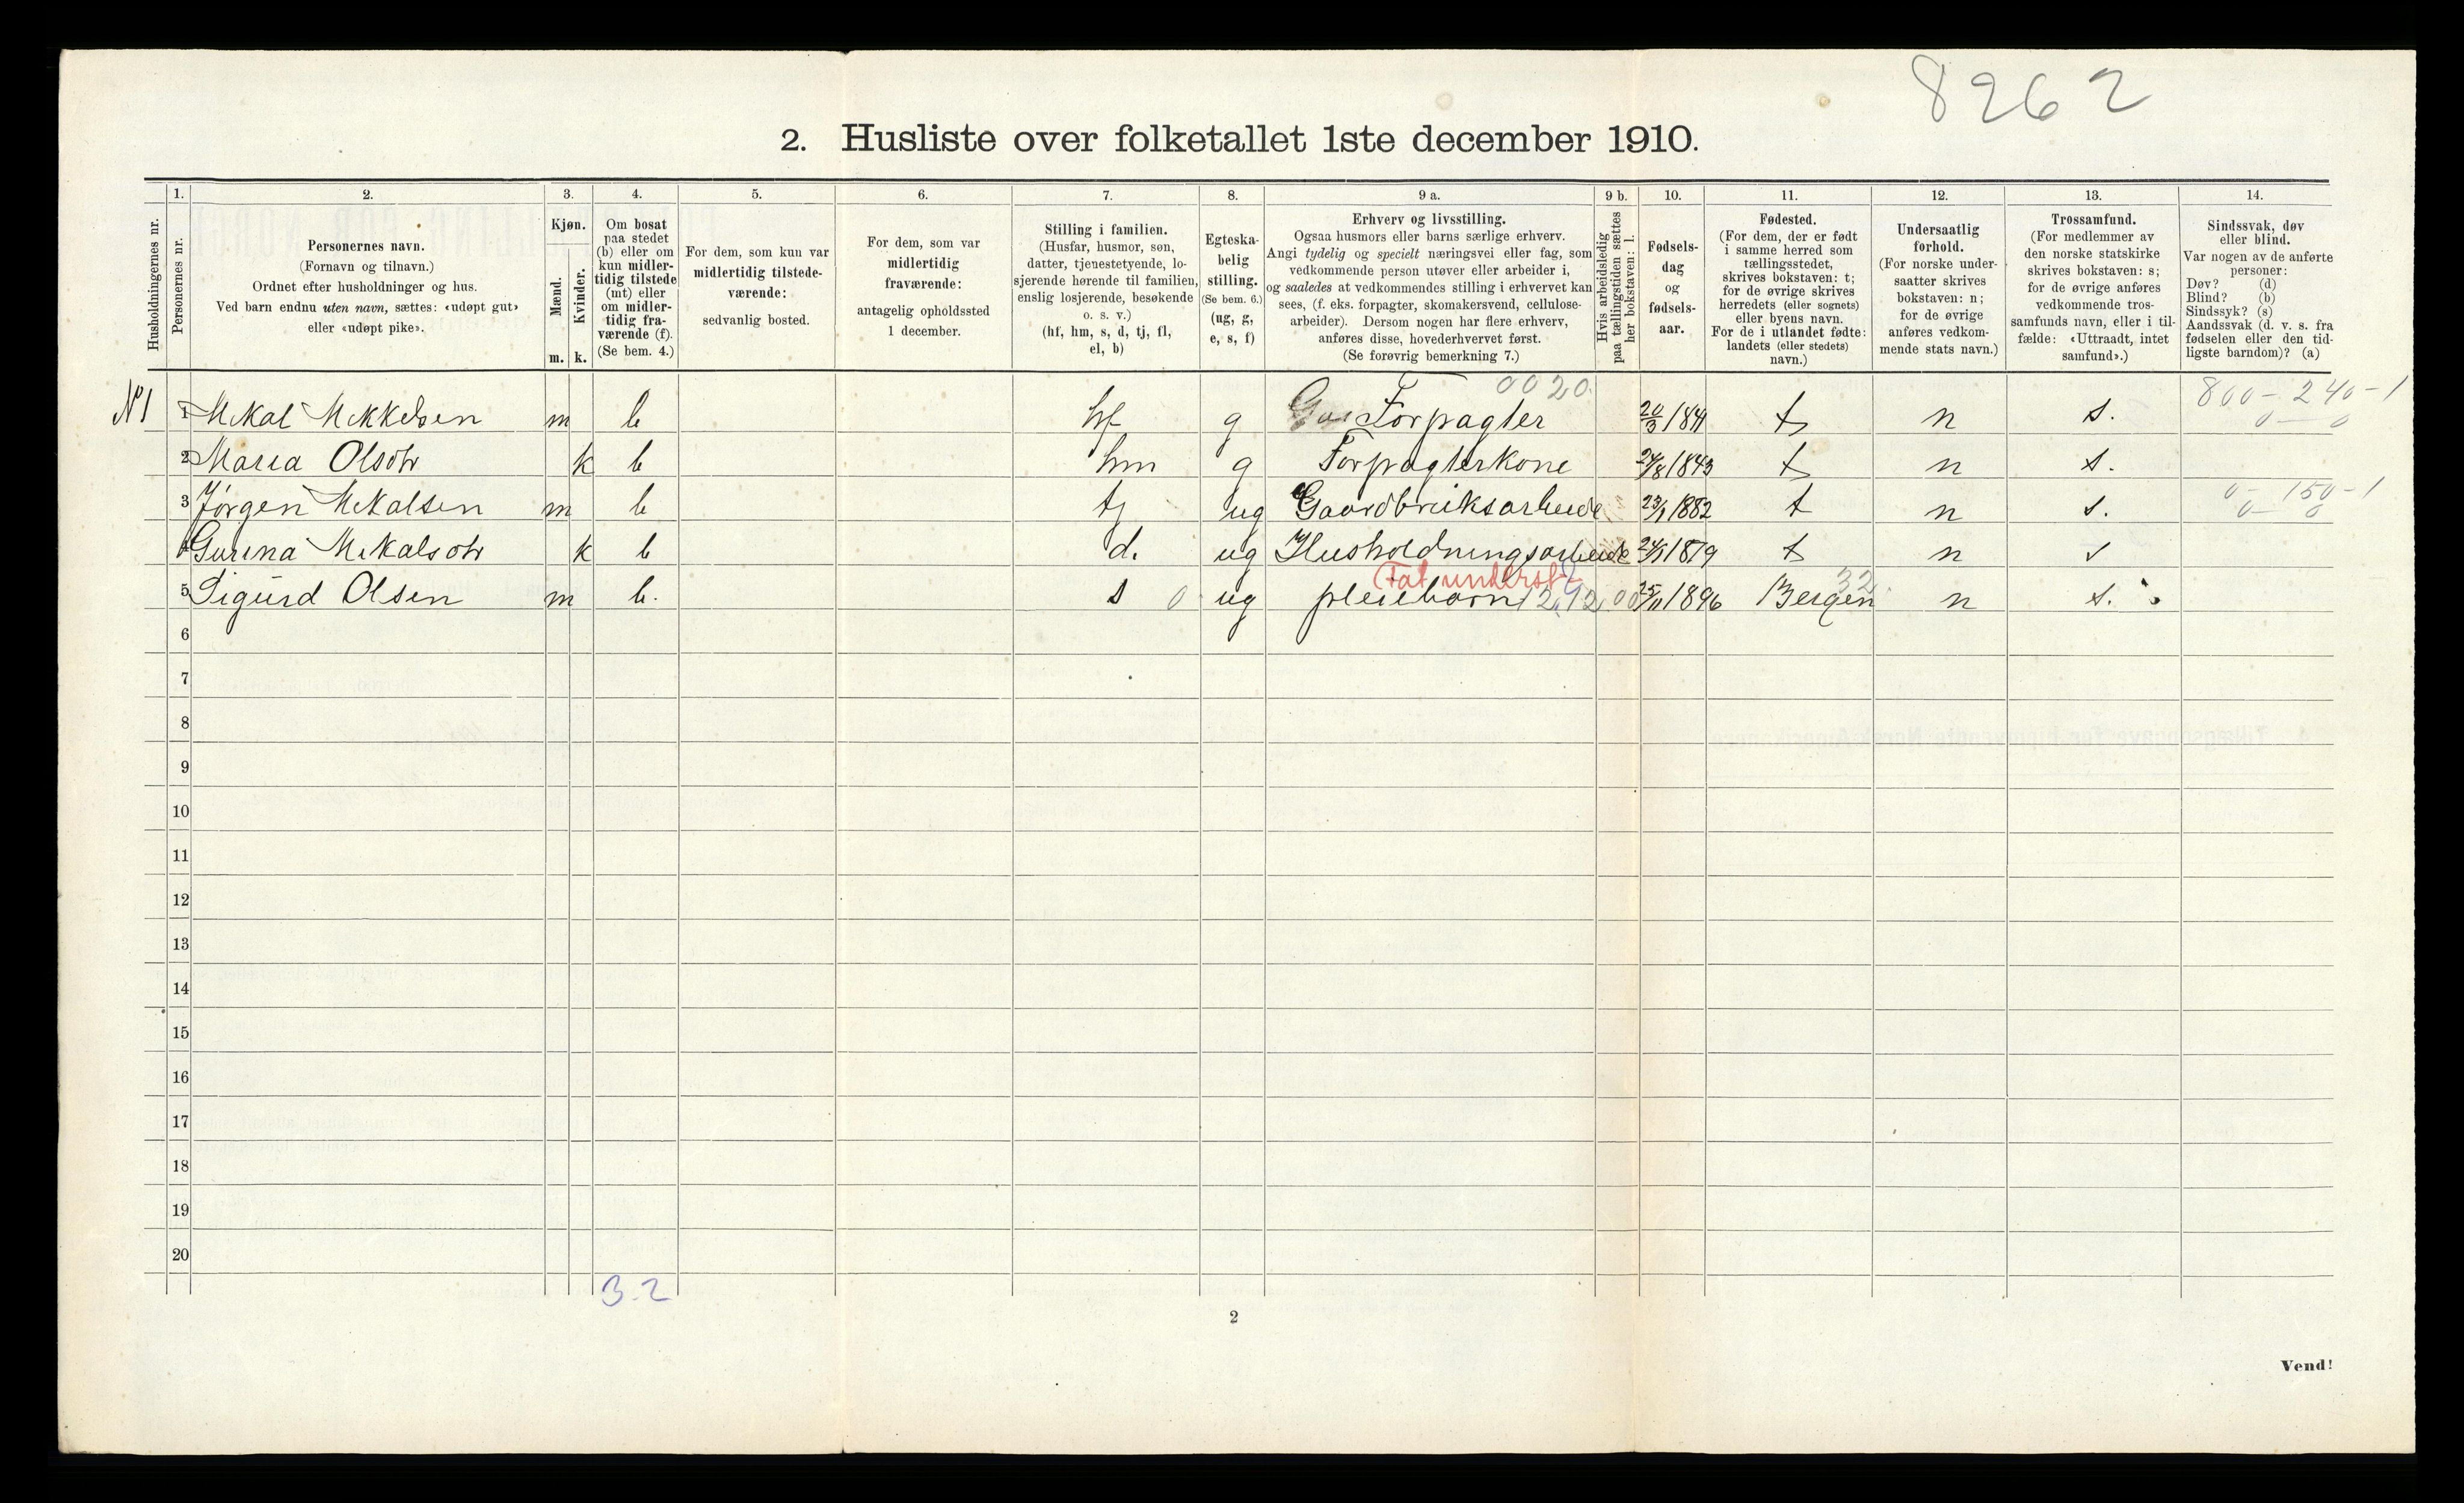 8262
2. Husliste over folketallet 1ste december 1910.
Husholdningernes nr.
1.
Personernes nr.
2.
Personernes navn.
(Fornavn og tilnavn.)
Ordnet efter husholdninger og hus.
Ved barn endnu uten navn, sættes: «udøpt gut»
eller «udøpt pike».
3.
Kjøn.
Mænd.
Kvinder.
m. k.
4.
Om bosat
paa stedet
(b) eller om
kun midler-
tidig tilstede
(mt) eller
om midler-
tidig fra-
værende (f).
(Se bem. 4.)
5.
For dem, som kun var
midlertidig tilstede-
værende:
sedvanlig bosted.
6.
For dem, som var
midlertidig
fraværende:
antagelig opholdssted
1 december.
7.
Stilling i familien.
(Husfar, husmor, søn,
datter, tjenestetyende, lo-
sjerende hørende til familien,
enslig losjerende, besøkende
o. s. v.)
(hf, hm, s, d, tj, fl,
el, b)
8.
Egteska-
belig
stilling.
(Se bem. 6.)
(ug, g,
e, s, f)
9 a.
Erhverv og livsstilling.
Ogsaa husmors eller barns særlige erhverv.
Angi tydelig og specielt næringsvei eller fag, som
vedkommende person utøver eller arbeider i,
og saaledes at vedkommendes stilling i erhvervet kan
sees, (f. eks. forpagter, skomakersvend, cellulose-
arbeider). Dersom nogen har flere erhverv,
anføres disse, hovederhvervet først.
(Se forøvrig bemerkning 7.)
9 b.
Hvis arbeidsledig
paa tællingstiden sættes
her bokstaven: l.
10.
Fødsels-
dag
og
fødsels-
aar.
11.
Fødested.
(For dem, der er født
i samme herred som
tællingsstedet,
skrives bokstaven: t;
for de øvrige skrives
herredets (eller sognets)
eller byens navn.
For de i utlandet fødte:
landets (eller stedets)
navn.)
12.
Undersaatlig
forhold.
(For norske under-
saatter skrives
bokstaven: n;
for de øvrige
anføres vedkom-
mende stats navn.)
13.
Trossamfund.
(For medlemmer av
den norske statskirke
skrives bokstaven: s;
for de øvrige anføres
vedkommende tros-
samfunds navn, eller i til-
fælde: «Uttraadt, intet
samfund».)
14.
Sindssvak, døv
eller blind.
Var nogen av de anførte
personer:
Døv? (d)
Blind? (b)
Sindssyk? (s)
Aandssvak (d. v. s. fra
fødselen eller den tid-
ligste barndom)? (a)
0020 800 - 240 - 1
№1 1 Mikal Mikkelsen m b hf g Forpagter 20/3 1841 t n s. 0 — 0
2 Maria Olsdtr k b hm g Forpagterkone 24/8 1843 t n s.
0 - 150 - 1
3 Jørgen Mikalsen m b tj ug Gaardbruksarbeide 23/1 1882 t n s. 0 — 0
4 Gurina Mikalsdtr k b d. ug Husholdningsarbeide 24/1 1879 t n s
Fat. underst. 32
5 Sigurd Olsen m b. s 0 ug pleiebarn 25/11 1896 Bergen n s.
6
7
8
9
10
11
12
13
14
15
16
17
18
19
20
3.2
2
Vend!